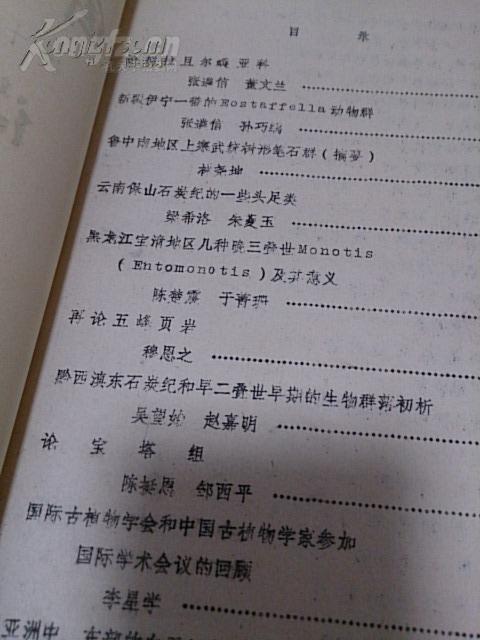 目 录
亚科
张遴信 董文兰
新疆伊宁一带的Eostaffella动物群
张遴信 孙巧缡
鲁中南地区上寒武统树形笔石群(摘要)
林尧坤
云南保山石炭纪的一些头足类
梁希洛 朱夔玉
黑龙江宝清地区几种晚三叠世Monotis
(Entomonotis)及其意义
陈楚震 于菁珊
再论五峰页岩
穆恩之
黔西滇东石炭纪和早二叠世早期的生物群落初析
吴望始 赵嘉明
论 宝 塔 组
陈挺恩 邹西平
国际古植物学会和中国古植物学家参加
国际学术会议的回顾
李星学
亚洲中、东部